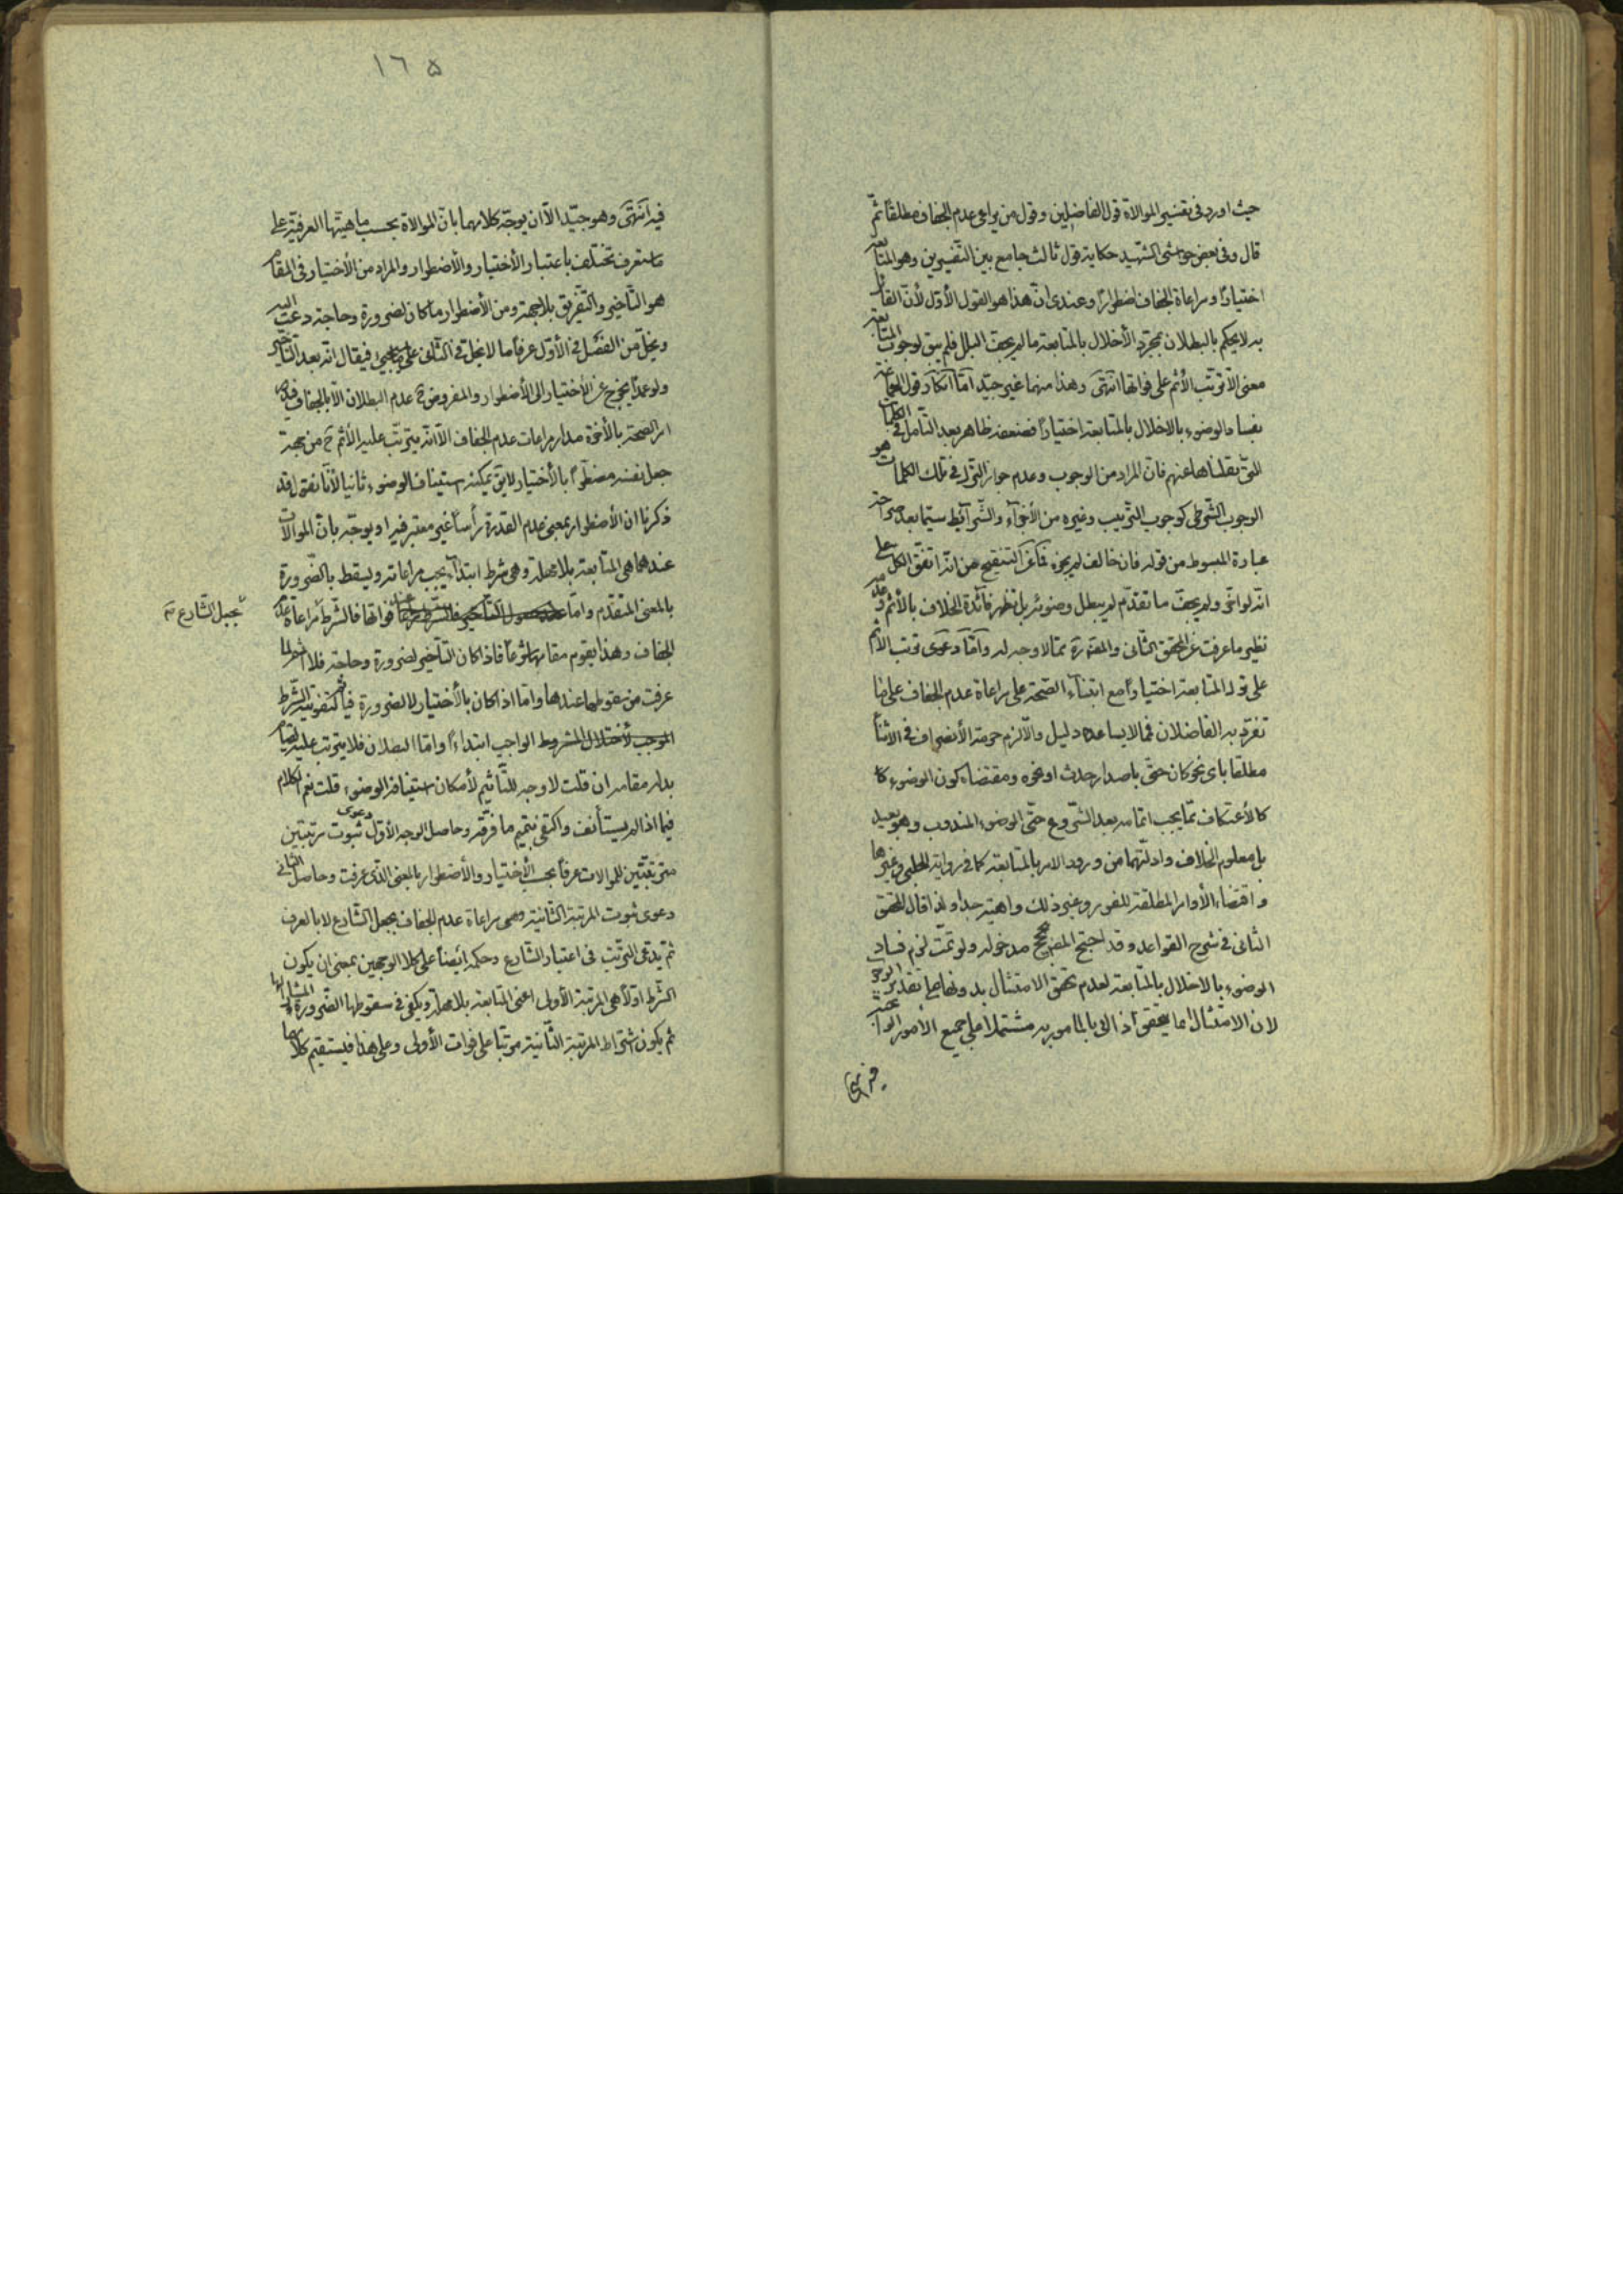 حيث اورد فى تفسير الموالاة قول الفاضلين وقول من يراعى عدم الجفاف مطلقا ثم
قال وفى بعض حواشى الشهيد حكاية قول ثالث جامع بين التفسيرين وهو المتابعة
اختيارا ومراعاة الجفاف اضطرارا وعندى انّ هذا هو القول الأوّل لأنّ القائل
به لا يحكم بالبطلان بمجرد الأخلال بالمتابعة ما لم يجف البلل فلم يبق لوجوب المتابعة
معنى الّا ترتّب الأثم على فواتها انتهى وهذا منهما غير جيّد امّا انكار قول
بفساد الوضوء بالاخلال بالمتابعة اختيارا فضعفه ظاهر بعد التأمل فى الكلمات
التى نقلناها عنهم فانّ المراد من الوجوب وعدم جواز الترك فى تلك الكلمات هو
الوجوب الشرطى كوجوب الترتيب وغيره من الأجزآء والشرآئط سيّما بعد صراحة
عبارة المبسوط من قوله فان خالف لم يجزه فما عن التنقيح من انّه اتفق الكل على
انّه لو اخّر ولم يجف ما تقدّم لم يبطل وضوئه بل تظهر فائدة الخلاف بالأثم وعدمه
نظير ما عرفت عن المحقق الثانى والمقتصر ممّا لا وجه له وامّا دعوى ترتب الأثم
على ترك المتابعة اختيارا مع ابتنآء الصّحة على مراعاة عدم الجفاف على ما
تفرّد به الفاضلان فمّا لا يساعده دليل والّا لزم حرمة الأنصراف فى الاثنآء
مطلقا باى نحو كان حتّى باصدار حدث او نحوه ومقتضاه كون الوضوء
كالأعتكاف ممّا يجب اتمامه بعد الشروع حتّى الوضوء المندوب وهو بعيد
بل معلوم الخلاف وادلّتهما من ورود الامر بالمتابعة كما فى رواية الحلبى وغيرها
واقتضاء الأوامر المطلقة للفور وغير ذلك واهية جدا ولذا قال المحقق
الثانى فى شرح القواعد وقد احتج المص بحجج مدخوله ولو تمّت لزم فساد
الوضوء بالاخلال بالمتابعة لعدم تحقق الامتثال بدونها على تقدير الوجوب
لان الامتثال انما يتحقق اذا اتى بالمامور به مشتملا على جميع الأمور الواجبة
فيه انتهى
١٦٥
فيه انتهى وهو جيّد الّا ان يوجّه كلامهما بانّ الموالاة بحسب ماهيتها العرفيّة على
ما ستعرف تختلف باعتبار الأختيار والأضطرار والمراد من الأختيار فى المقام
هو التأخير والتفريق بلا جهة ومن الأضطرار ما كان لضرورة وحاجة دعت اليه
ويخلّ من الفصل فى الأوّل عرفا ما لا يخل فى الثانى على فيقال انّه بعد التأخير
ولو عمدا يخرج عن الأختيار الى الأضطرار والمفروض ح عدم البطلان الّا بالجفاف
امر الصحة بالأخرة مدار مراعات عدم الجفاف الّا انّه يترتّب عليه الأثم ح من جهة
جعل نفسه مضطرّا بالأختيار لا يق يمكنه استيناف الوضوء ثانيا لأنّا نقول قد
ذكرنا ان الأضطرار بمعنى عدم القدرة رأسا غير معتبر فيه او يوجّه بانّ الموالات
عندهما هى المتابعة بلا مهلة وهى شرط ابتدآء يجب مراعاته ويسقط بالضّرورة
بالمعنى المتقدّم وامّا عند فواتها فالشّرط مراعاة عدم
بجعل الشّارع صح
الجفاف وهذا يقوم مقامها شرعا فاذا كان التأخير لضرورة وحاجة فلا اثم لما
عرفت من سقوطها عندها وامّا اذا كان بالأختيار لا لضرورة فيأثم لتفويته الشّرط
الواجب ابتداءً وامّا البطلان فلا يترتب عليه لقيام
بدله مقامه ان قلت لا وجه للتأثيم لأمكان استيناف الوضوء قلت نعم الكلام
فيما اذا لم يستأنف واكتفى بتتميم ما فرّقه وحاصل الوجه الأوّل دعوى ثبوت مرتبتين
مترتبتين للموالات عرفا بحسب الأختيار والأضطرار بالمعنى الذى عرفت وحاصل الثانى
دعوى ثبوت المرتبة الثانية وهى مراعاة عدم الجفاف بجعل الشّارع لا بالعرف
ثمّ يدّعى الترتّب فى اعتبار الشّارع وحكمه ايضا على كلا الوجهين بمعنى ان يكون
الشّرط اوّلا هى المرتبة الأولى اعنى المتابعة بلا مهلة ويكفى فى سقوطها الضّرورة المشار اليها
ثم يكون اشتراط المرتبة الثّانية مرتّبا على فوات الأولى وعلى هذا فيستقيم كلامهما